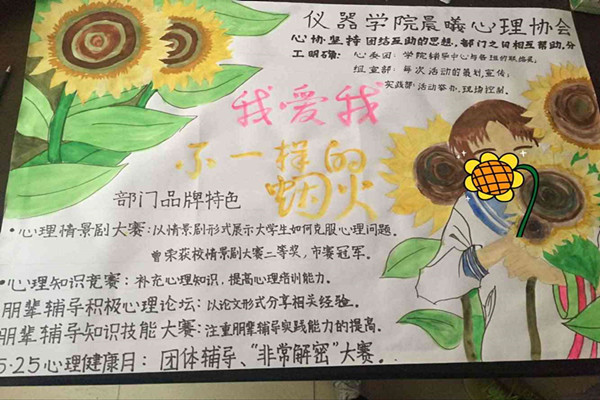 仪器学院晨曦心理协会
心协坚持团结互助的思想,部门之间相互帮助,分
工明确:心委团:学院辅导中心与各班的联络员;
组宣部:每次活动的策划,宣传;
实践部:活动举办,现场控制.
我爱我
不一样的
烟火
部门品牌特色
·心理情景剧大赛:以情景剧形式展示大学生如何克服心理问题.
曾荣获校情景剧大赛二等奖,市赛冠军.
·心理知识竞赛:补充心理知识,提高心理培训能力.
朋辈辅导积极心理论坛:以论文形式分享相关经验.
朋辈辅导知识技能大赛:注重朋辈辅导实践能力的提高.
5·25心理健康月:团体辅导、"非常解密"大赛.